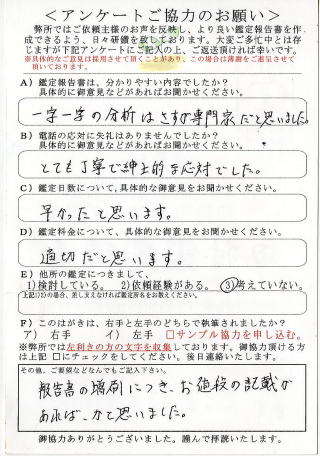 ＜アンケートご協力のお願い＞
弊所ではご依頼主様のお声を反映し、より良い鑑定報告書を作
成できるよう、日々研鑽を致しております。大変ご多忙中とは存
じますが下記アンケートにご記入の上、ご返送頂ければ幸いです。
※具体的なご意見は採用させて頂くことがあり、この場合は薄謝をご進呈させて
頂いております。
A) 鑑定報告書は、分かりやすい内容でしたか?
具体的に御意見などがあればお聞かせください。
一字一字の分析はさすが専門家だと思いました。
B) 電話の応対に失礼はありませんでしたか?
具体的に御意見などがあればお聞かせください。
とても丁寧で紳士的な応対でした。
C) 鑑定日数について,具体的な御意見をお聞かせください。
早かったと思います。
D) 鑑定料金について、具体的な御意見をお聞かせください。
適切だと思います。
E) 他所の鑑定につきまして、
1)検討している。 2)依頼経験がある。 3)考えていない。
上記1)2)の場合、差し支えなければ鑑定所名をお教えください。
F) このはがきは、右手と左手のどちらで執筆されましたか?
ア) 右手 イ) 左手 □サンプル協力を申し込む。
※弊所では左利きの方の文字を収集しております。御協力頂ける方
は上記 □にチェックをしてください。後日連絡いたします。
その他、ご要望などなんでもご記入下さい。
報告書の増刷につき、お値段の記載が
あれば、かと思いました。
御協力ありがとうございました。謹んで拝読いたします。